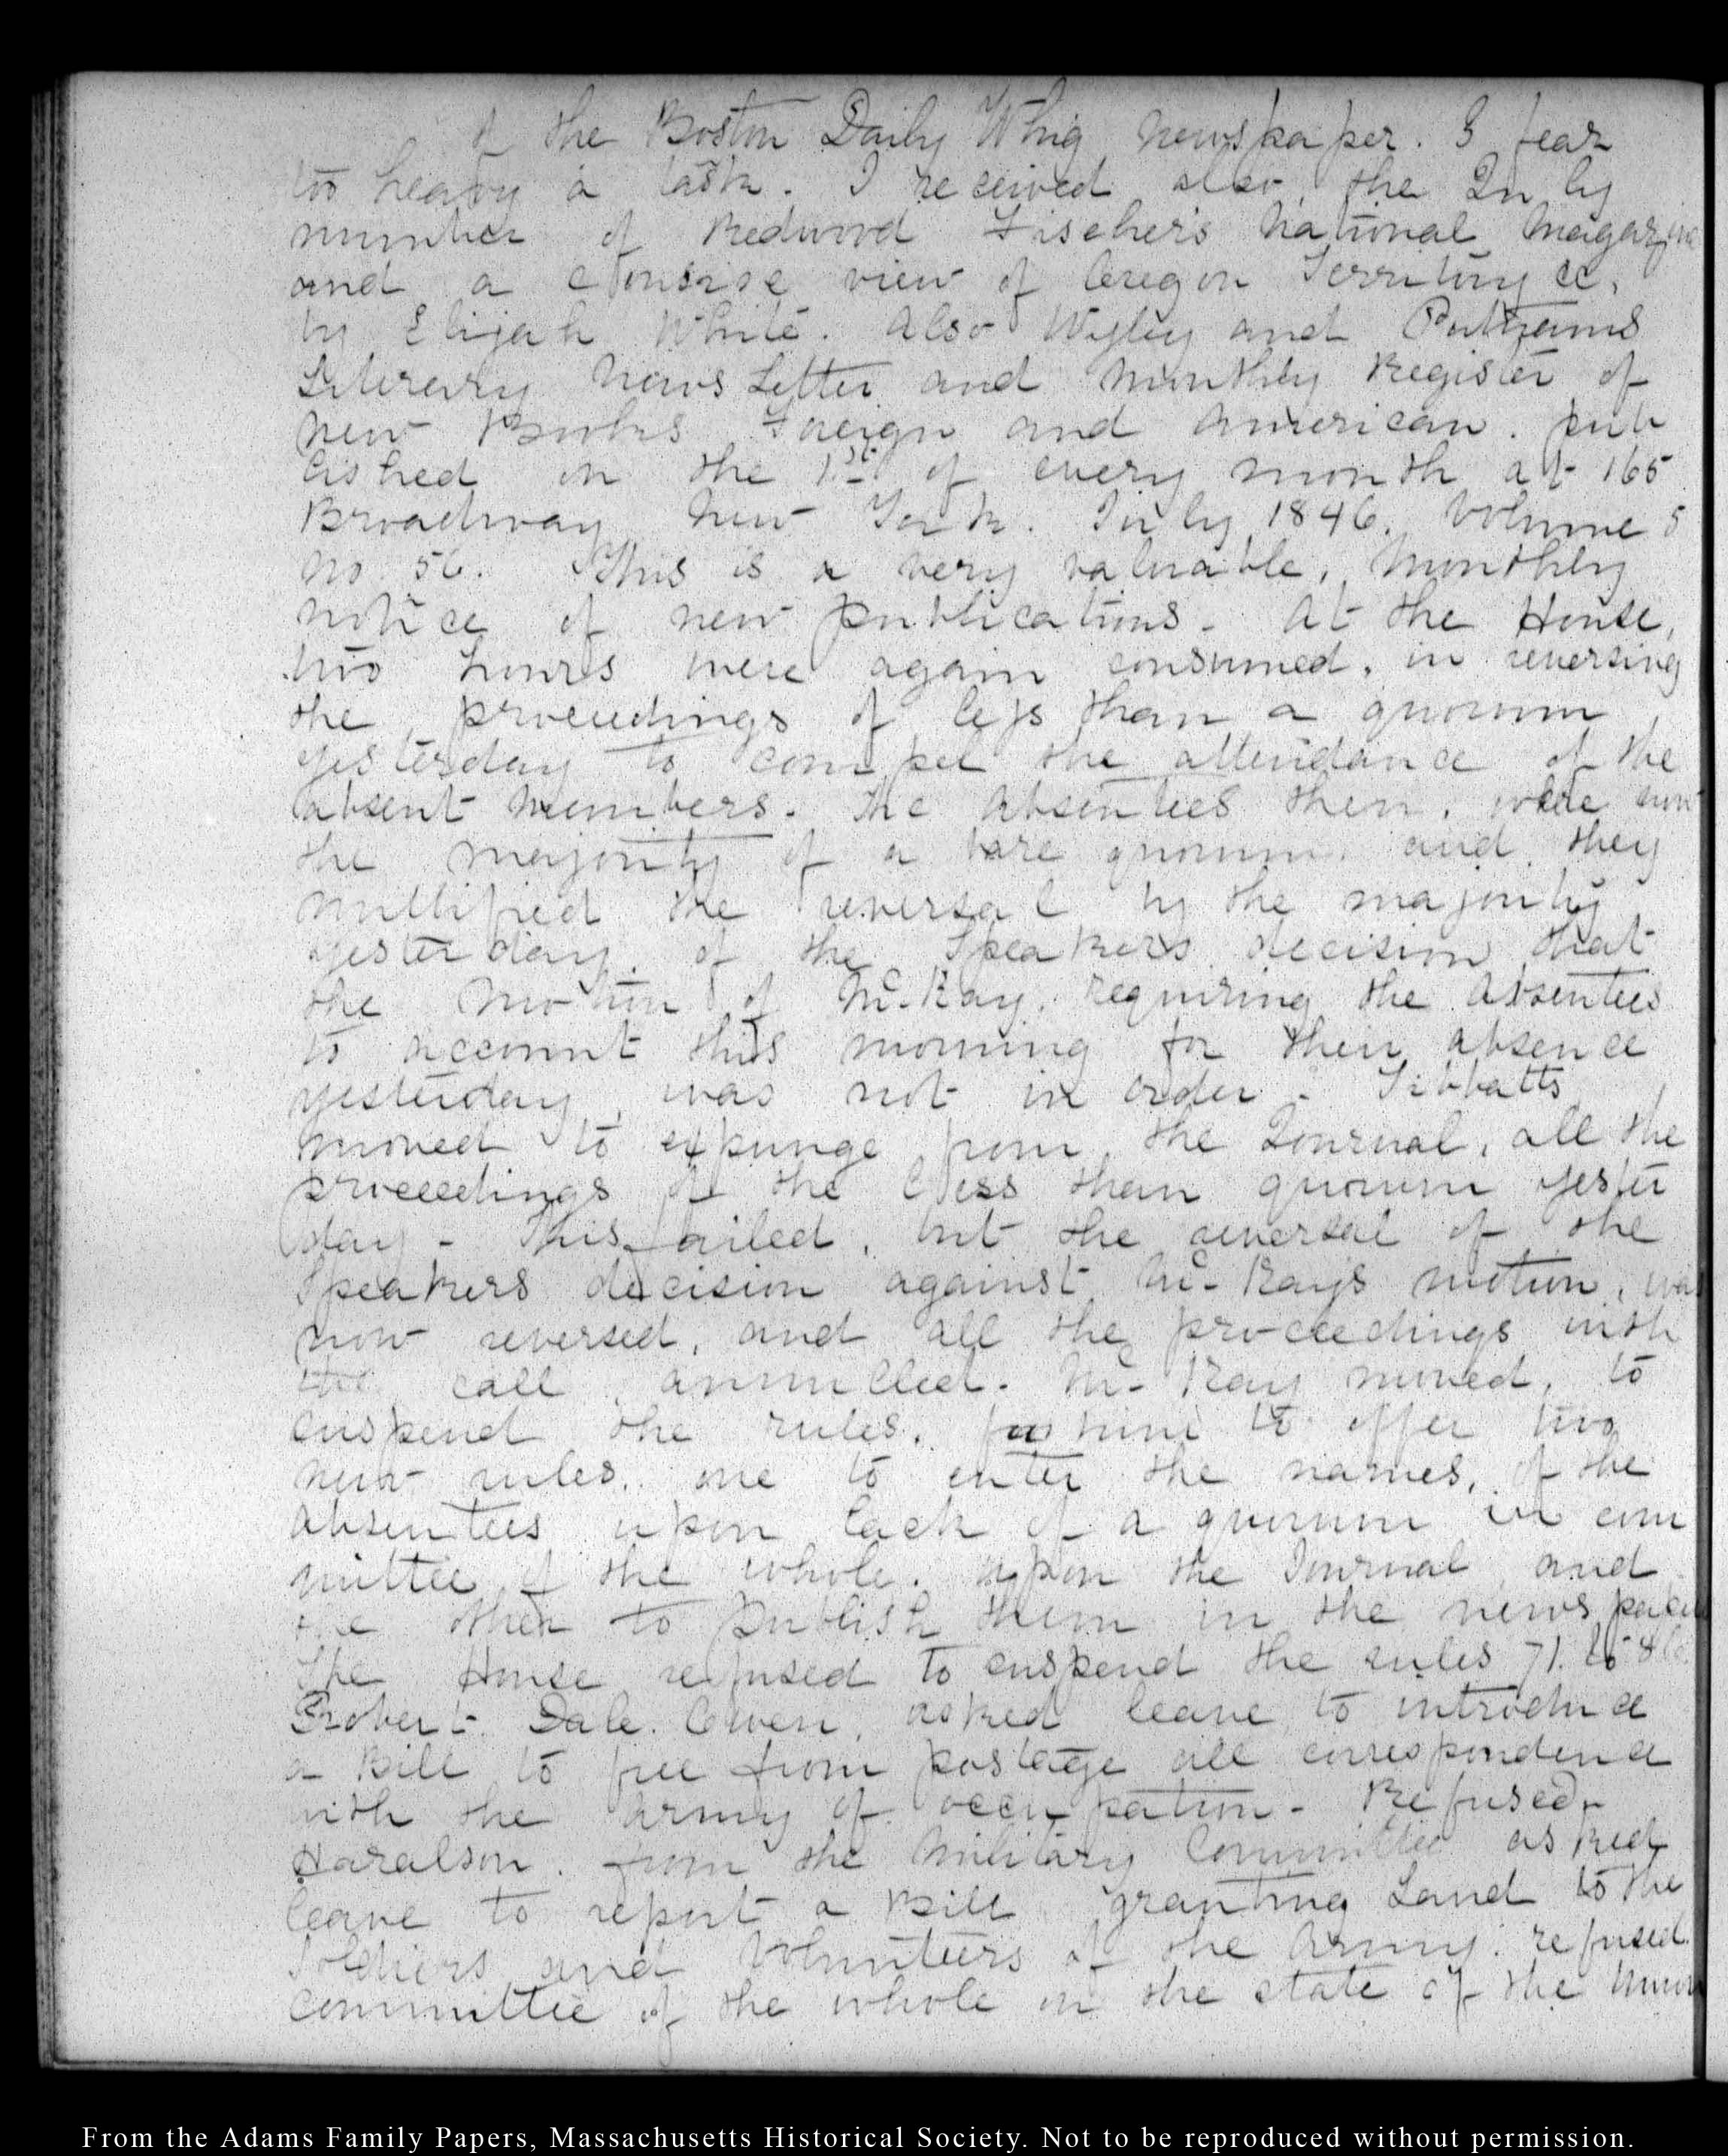 of the Boston Daily Whig newspaper. I fear
too heavy a task. I received also, the July
number of Redwood Fischer's National Magazine
and a Concise view of Oregon Territory &c,
by Elijah White. Also Wyley and Putnams
Literary News Letter and Monthly Register of
New Books Foreign and American. pub
lished on the 1st of every month at 165
Broadway New York. July 1846. Volume 5
No. 56. This is a very valuable, monthly
notice of new publications. At the House,
two hours were again consumed, in reversing
the proceedings of less than a quorum,
yesterday to compel the attendance of the
absent members. The absentees then, were now
the majority of a bare quorum, and they
nullified the reversal by the majority
yesterday, of the Speakers decision that
the motion of McKay, requiring the absentees
to account this morning for their absence
yesterday, was not in order. Tibbatts
moved to expunge from the Journal, all the
proceedings of the less than quorum yester
day - This failed, but the reversal of the
Speakers decision against McKay's motion, was
now reversed, and all the proceedings with
the call annulled. McKay moved, to
suspend the rules, for him to offer two
new rules, one to enter the names, of the
absentees upon lack of a quorum in com
mittee of the whole, upon the Journal, and
the other to publish them in the newspapers
The House refused to suspend the rules 71. to
Robert Dale Owen, asked leave to introduce
a Bill to free from postage all correspondence
with the army of occupation - Refused.
Haralson. from the Military Committee asked
leave to report a Bill granting Land to the
Soldiers and Volunteers of the Army. refused.
committee of the whole on the state of the Union
From the Adams Family Papers, Massachusetts Historical Society. Not to be reproduced without permission.